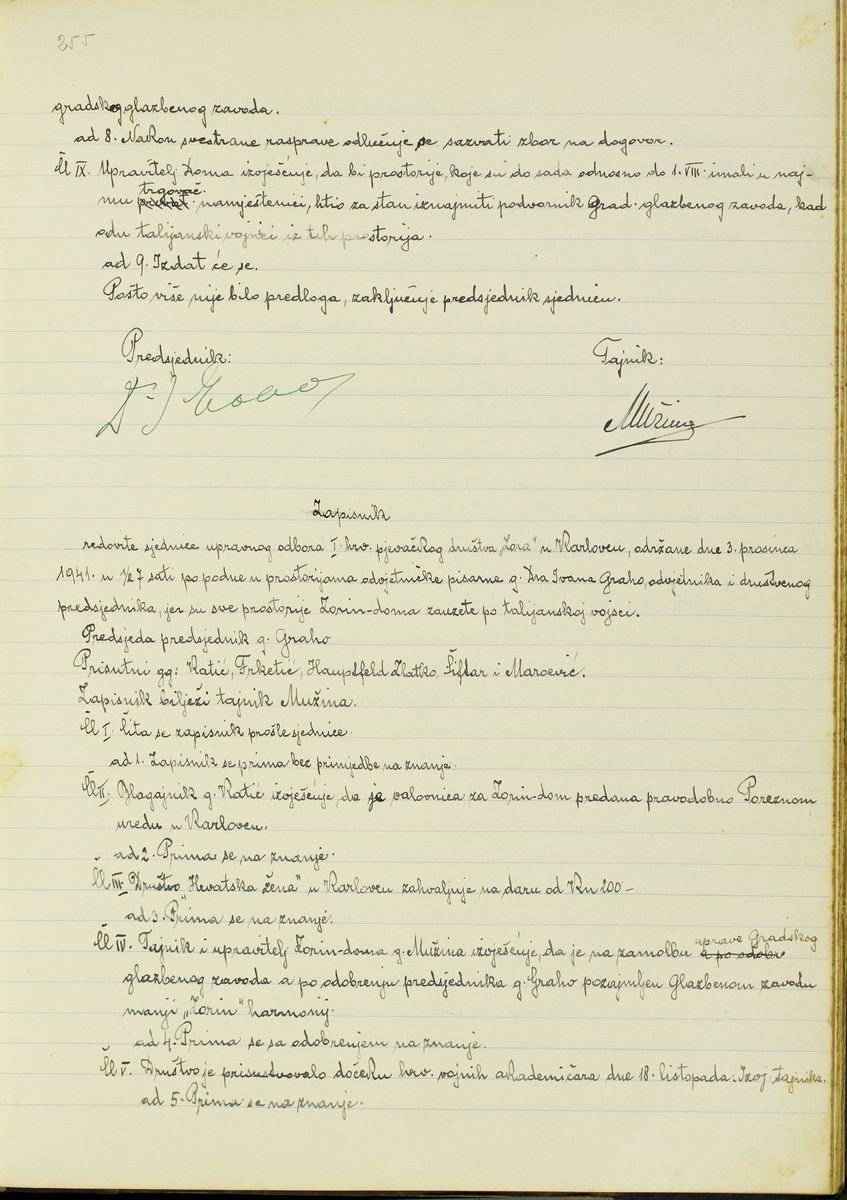 255
gradskog glazbenog zavoda.
ad 8. Nakon svestrane rasprave odlučuje se sazvati zbor na dogovor.
Čl IX. Upravitelj Doma izvješćuje, da bi prostorije, koje su do sada odnosno do 1. VIII. imali u naj-
trgovač.
mu namještenici, htio za stan iznajmiti podvornik Grad. glazbenog zavoda, kad
odu talijanski vojnici iz tih prostorija.
ad 9. Izdat će se.
Pošto više nije bilo predloga, zaključuje predsjednik sjednicu.
Predsjednik:
Tajnik:
Mužina
Zapisnik
redovite sjednice upravnog odbora I. hrv. pjevačkog društva „Zora" u Karlovcu, održane dne 3. prosinca
1941. u ½ 7 sati po podne u prostorijama odvjetničke pisarne g. Dra Ivana Graho, odvjetnika i društvenog
predsjednika, jer su sve prostorije Zorin-doma zauzete po talijanskoj vojsci.
Predsjeda predsjednik g. Graho
Prisutni gg: Katić, Frketić, Hauptfeld Zlatko, Šiftar i Maroević.
Zapisnik bilježi tajnik Mužina.
Čl I. Čita se zapisnik prošle sjednice.
ad 1. Zapisnik se prima bez primjedbe na znanje.
Čl II. Blagajnik g. Katić izvješćuje, da je valovnica za Zorin-dom predana pravodobno Poreznom
uredu u Karlovcu.
ad 2. Prima se na znanje.
Čl III. Društvo „Hrvatska žena" u Karlovcu zahvaljuje na daru od Kn 200-
ad 3. Prima se na znanje.
uprave Gradskog
Čl IV. Tajnik i upravitelj Zorin-doma g. Mužina izvješćuje, da je na zamolbu a po odobr
glazbenog zavoda a po odobrenju predsjednika g. Graho pozajmljen Glazbenom zavodu
manji „Zorin" harmonij.
ad 4. Prima se sa odobrenjem na znanje.
Čl V. Društvo je prisustvovalo dočeku hrv. vojnih akademičara dne 18. listopada. Izvj. tajnika.
ad 5. Prima se na znanje.